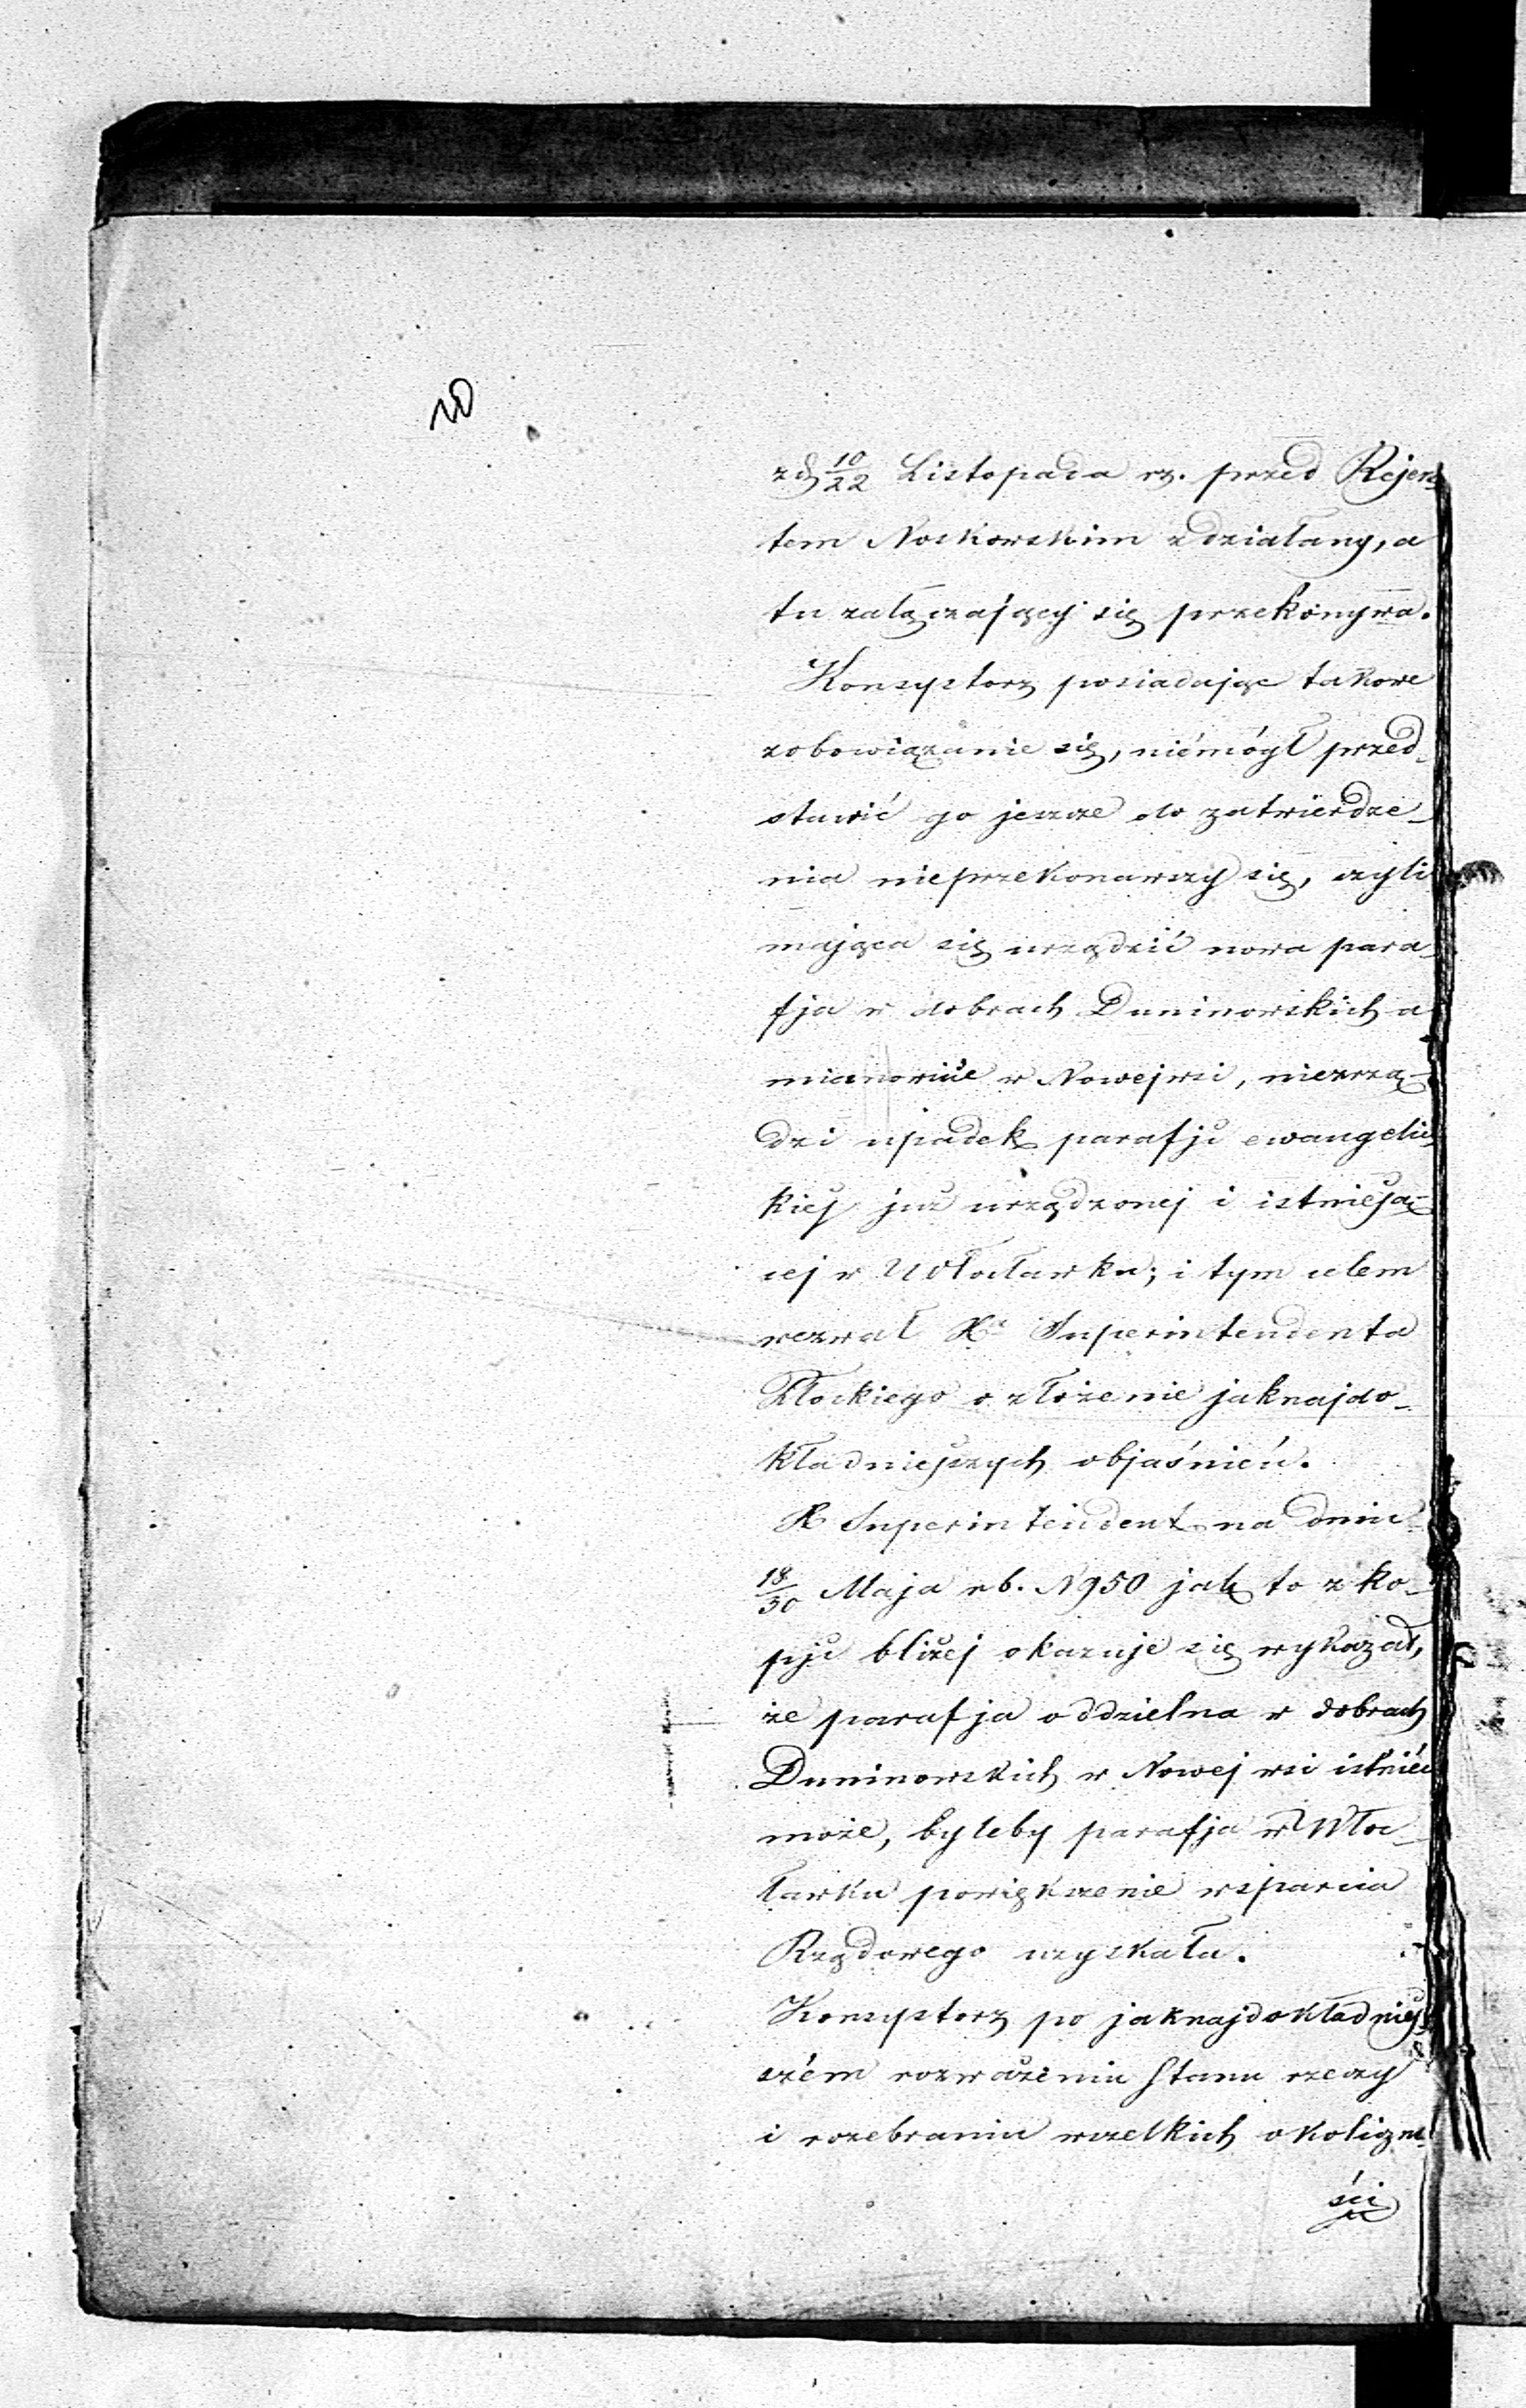 20
z d 10/22 Listopada rz. przed Rejen-
tem Noskowskim zdziałany, a
tu załączający się przekonywa.
Konsystorz posiadając takowe
zobowiązanie się, niémógł przed-
stawić go jeszcze do zatwierdze-
nia nieprzekonawszy się, czyli
mająca się urządzić nowa para-
fja w dobrach Duninowskich a
mianowicie w Nowejwsi, niezrzą-
dzi upadek parafji ewangelic-
kiej już urządzonej i istnieją-
cej w Włocławku; i tym celem
wezwał Xa Superintendenta
Płockiego o złożenie jaknajdo-
kładniejszych objaśnień.
X Superintendent na dniu
18/30 Maja rb. N 950 jak to z ko-
pji bliżej okazuje się wykazał,
że parafja oddzielna w dobrach
Duninowskich w Nowej wsi istnieć
może, byleby parafja w Wło-
cławku powiększenie wsparcia
Rządowego uzyskała.
Konsystorz po jaknajdokładniej-
szém rozważeniu Stanu rzeczy
i rozebraniu wszelkich okoliczno-
ści